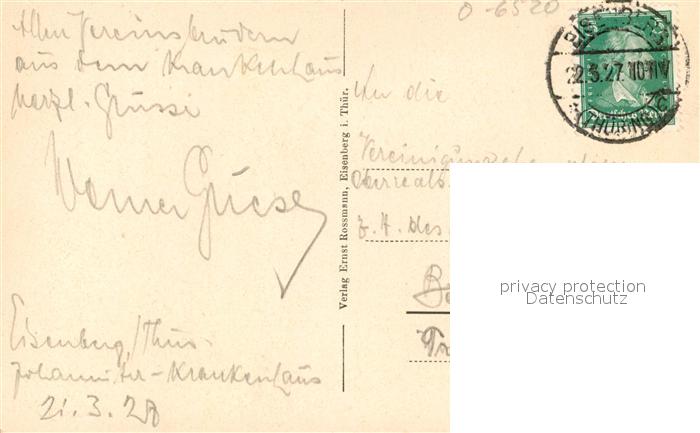 Allen Vereinsbrüdern
aus dem Krankenhaus
herzl. Grüsse
Werner Giese
Eisenberg/Thür.
Johanniter-Krankenhaus
21.3.27
Verlag Ernst Rossmann, Eisenberg i. Thür.
0-6520
EISENBERG
22.3.27. 10-11V
(THÜRING.)
An die
z. H. des
privacy protection
Datenschutz